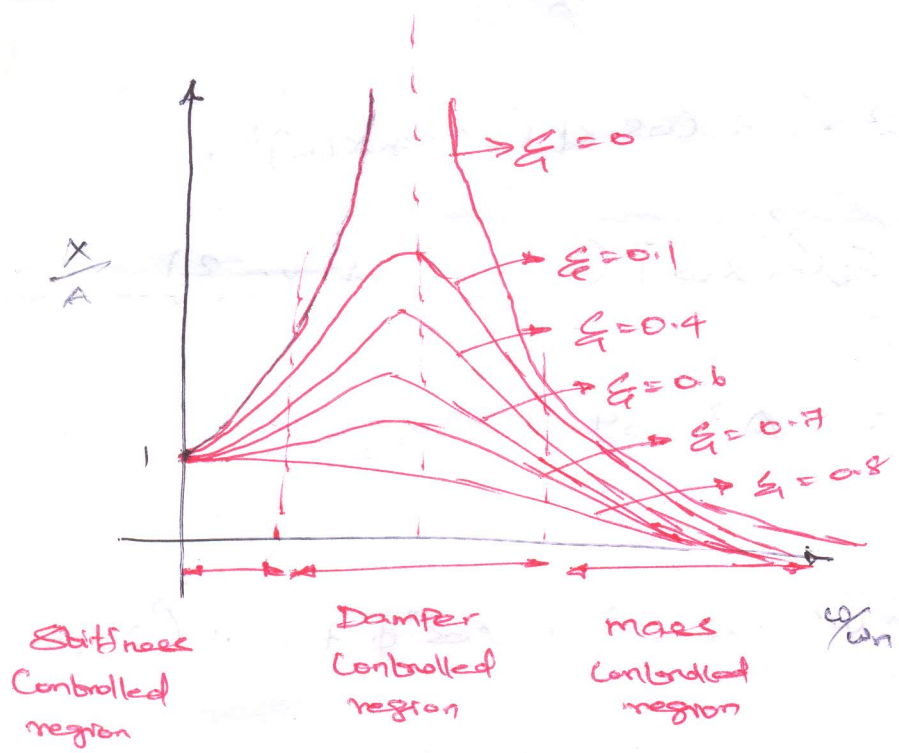 ξ = 0
X/A
ξ = 0.1
ξ = 0.4
ξ = 0.6
ξ = 0.7
1
ξ = 0.8
ω/ωn
Stiffness
Controlled
region
Damper
Controlled
region
mass
Controlled
region